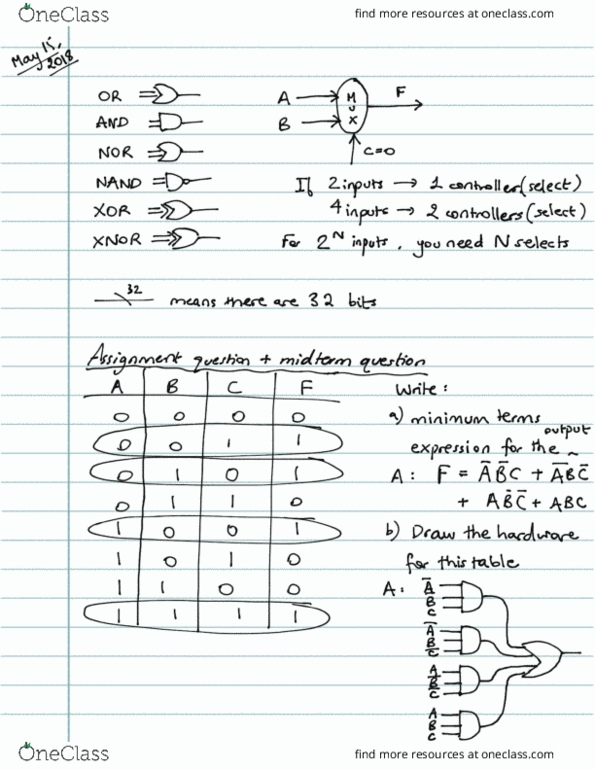 OneClass
find more resources at oneclass.com
May 15, 2018
OR
AND
NOR
NAND
XOR
XNOR
A
B
MUX
F
C=0
If 2 inputs → 1 controller (select)
4 inputs → 2 controllers (select)
For 2^N inputs, you need N selects
32
means there are 32 bits
Assignment question + midterm question
A B C F
0 0 0 0
0 0 1 1
0 1 0 1
0 1 1 0
1 0 0 1
1 0 1 0
1 1 0 0
1 1 1 1
Write:
a) minimum terms
expression for the output
A: F = A̅B̅C + A̅BC̅
+ AB̅C̅ + ABC
b) Draw the hardware
for this table
A:
A̅
B̅
C
A̅
B
C̅
A
B̅
C̅
A
B
C
OneClass
find more resources at oneclass.com